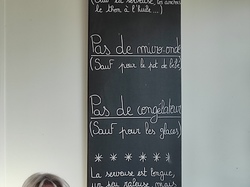 (Sauf la serveuse, les anchois
le thon à l'huile...)
Pas de micro-onde
(Sauf pour le pot de bébé)
Pas de congélateur
(Sauf pour les glaces)
* * * * * *
La serveuse est longue,
un peu raleuse, mais